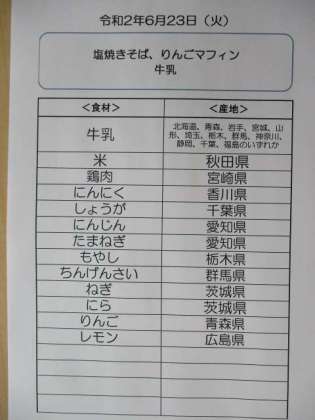 令和2年6月23日（火）
塩焼きそば、りんごマフィン
牛乳
＜食材＞ ＜産地＞
牛乳 北海道、青森、岩手、宮城、山
形、埼玉、栃木、群馬、神奈川、
静岡、千葉、福島のいずれか
米 秋田県
鶏肉 宮崎県
にんにく 香川県
しょうが 千葉県
にんじん 愛知県
たまねぎ 愛知県
もやし 栃木県
ちんげんさい 群馬県
ねぎ 茨城県
にら 茨城県
りんご 青森県
レモン 広島県